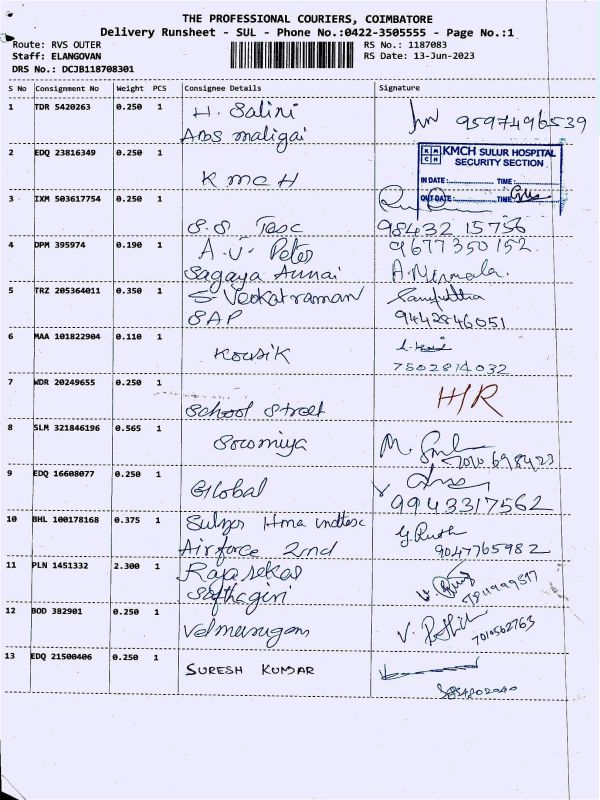 THE PROFESSIONAL COURIERS, COIMBATORE
Delivery Runsheet - SUL - Phone No.:0422-3505555 - Page No.:1
Route: RVS OUTER RS No.: 1187083
Staff: ELANGOVAN RS Date: 13-Jun-2023
DRS No.: DCJB118708301
S No Consignment No Weight PCS Consignee Details Signature
1 TDR 5420263 0.250 1 H. Salini
9597496539
maligai
2 EDQ 23816349 0.250 1 KMCH
KMCH KMCH SULUR HOSPITAL
SECURITY SECTION
IN DATE: TIME:
OUT DATE: TIME
3 IXM 503617754 0.250 1
S.S Tasc 98432 15756
4 DPM 395974 0.190 1 A.J. Peter 9677350152.
Sagaya Annai A. Nirmala.
5 TRZ 205364011 0.350 1 S Venkatraman
SAP 9442846051
6 MAA 101822904 0.110 1
Kousik
7502814032
7 WDR 20249655 0.250 1 H/R
School Street
8 SLM 321846196 0.565 1
Sowmiya M.
7010698423
9 EDQ 16608077 0.250 1
Global
9943317562
10 BHL 100178168 0.375 1 Sulzer
Airforce 2nd 9047765982
11 PLN 1451332 2.300 1 Rajasekar
12 BOD 382901 0.250 1
Velmurugan V.
7010562763
13 EDQ 21500406 0.250 1
SURESH KUMAR